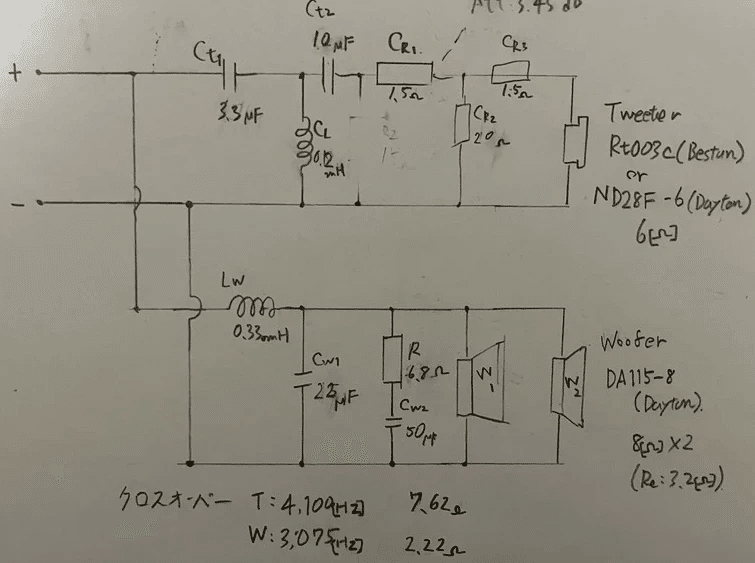 Ct2
ATT: 3.45 dB
Ct1
10 μF
CR1
CR3
+
3.3 μF
1.5Ω
1.5Ω
CL
0.12
mH
CR2
20Ω
Tweeter
Rt003c (Bestun)
or
ND28F-6 (Dayton)
6[Ω]
-
Lw
0.33mH
Cw1
25μF
R
6.8Ω
Cw2
50μF
W1
W2
Woofer
DA115-8
(Dayton)
8[Ω]×2
(Re: 3.2[Ω])
クロスオーバー T: 4,109[Hz] 7.62Ω
W: 3,075[Hz] 2.22Ω